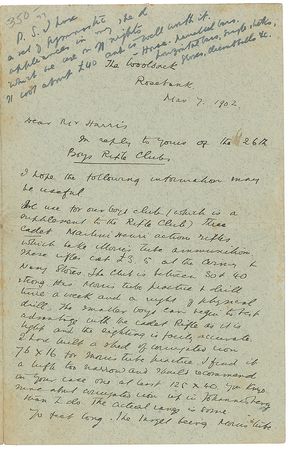 350
P.S. I have
a set of gymnastic
appliances in my shed
which we use on nights
It cost about £40 and is well worth it.
- Horse, parallel bars,
horizontal bars,
gloves, dumbbells &c.
The Woolsack
Rosebank.
Mar 7. 1902.
Dear Mr Harris
In reply to yours of the 26th
Boys Rifle Clubs
I hope the following information may
be useful
We use for our boys club (which is a
supplement to the Rifle Club) three
cadet Martini Henri action rifles
which take Morris tube ammunition
These rifles cost £3. 5 at the Army &
Navy Stores. The Club is between 30 & 40
strong. Has Morris tube practice & drill
twice a week and a night of physical
drill. The smaller boys can begin to
advantage with the cadet Rifle as it is
light and the sighting is fairly accurate.
I have built a shed of corrugated iron
76 x 16 for Morris tube practice. I find it
a bit too narrow and would recommend
in your case one at least 125 x 40. You know
more about corrugated iron up in Johannesburg
than I do. The actual range is some
70 feet long. The target being Morris tube